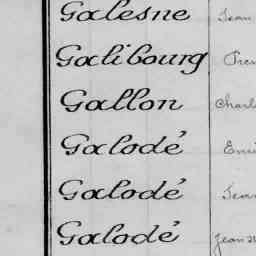 Galesne Jean
Galibourg
Gallon Charl
Galodé Emi
Galodé Jean
Galodé Jean